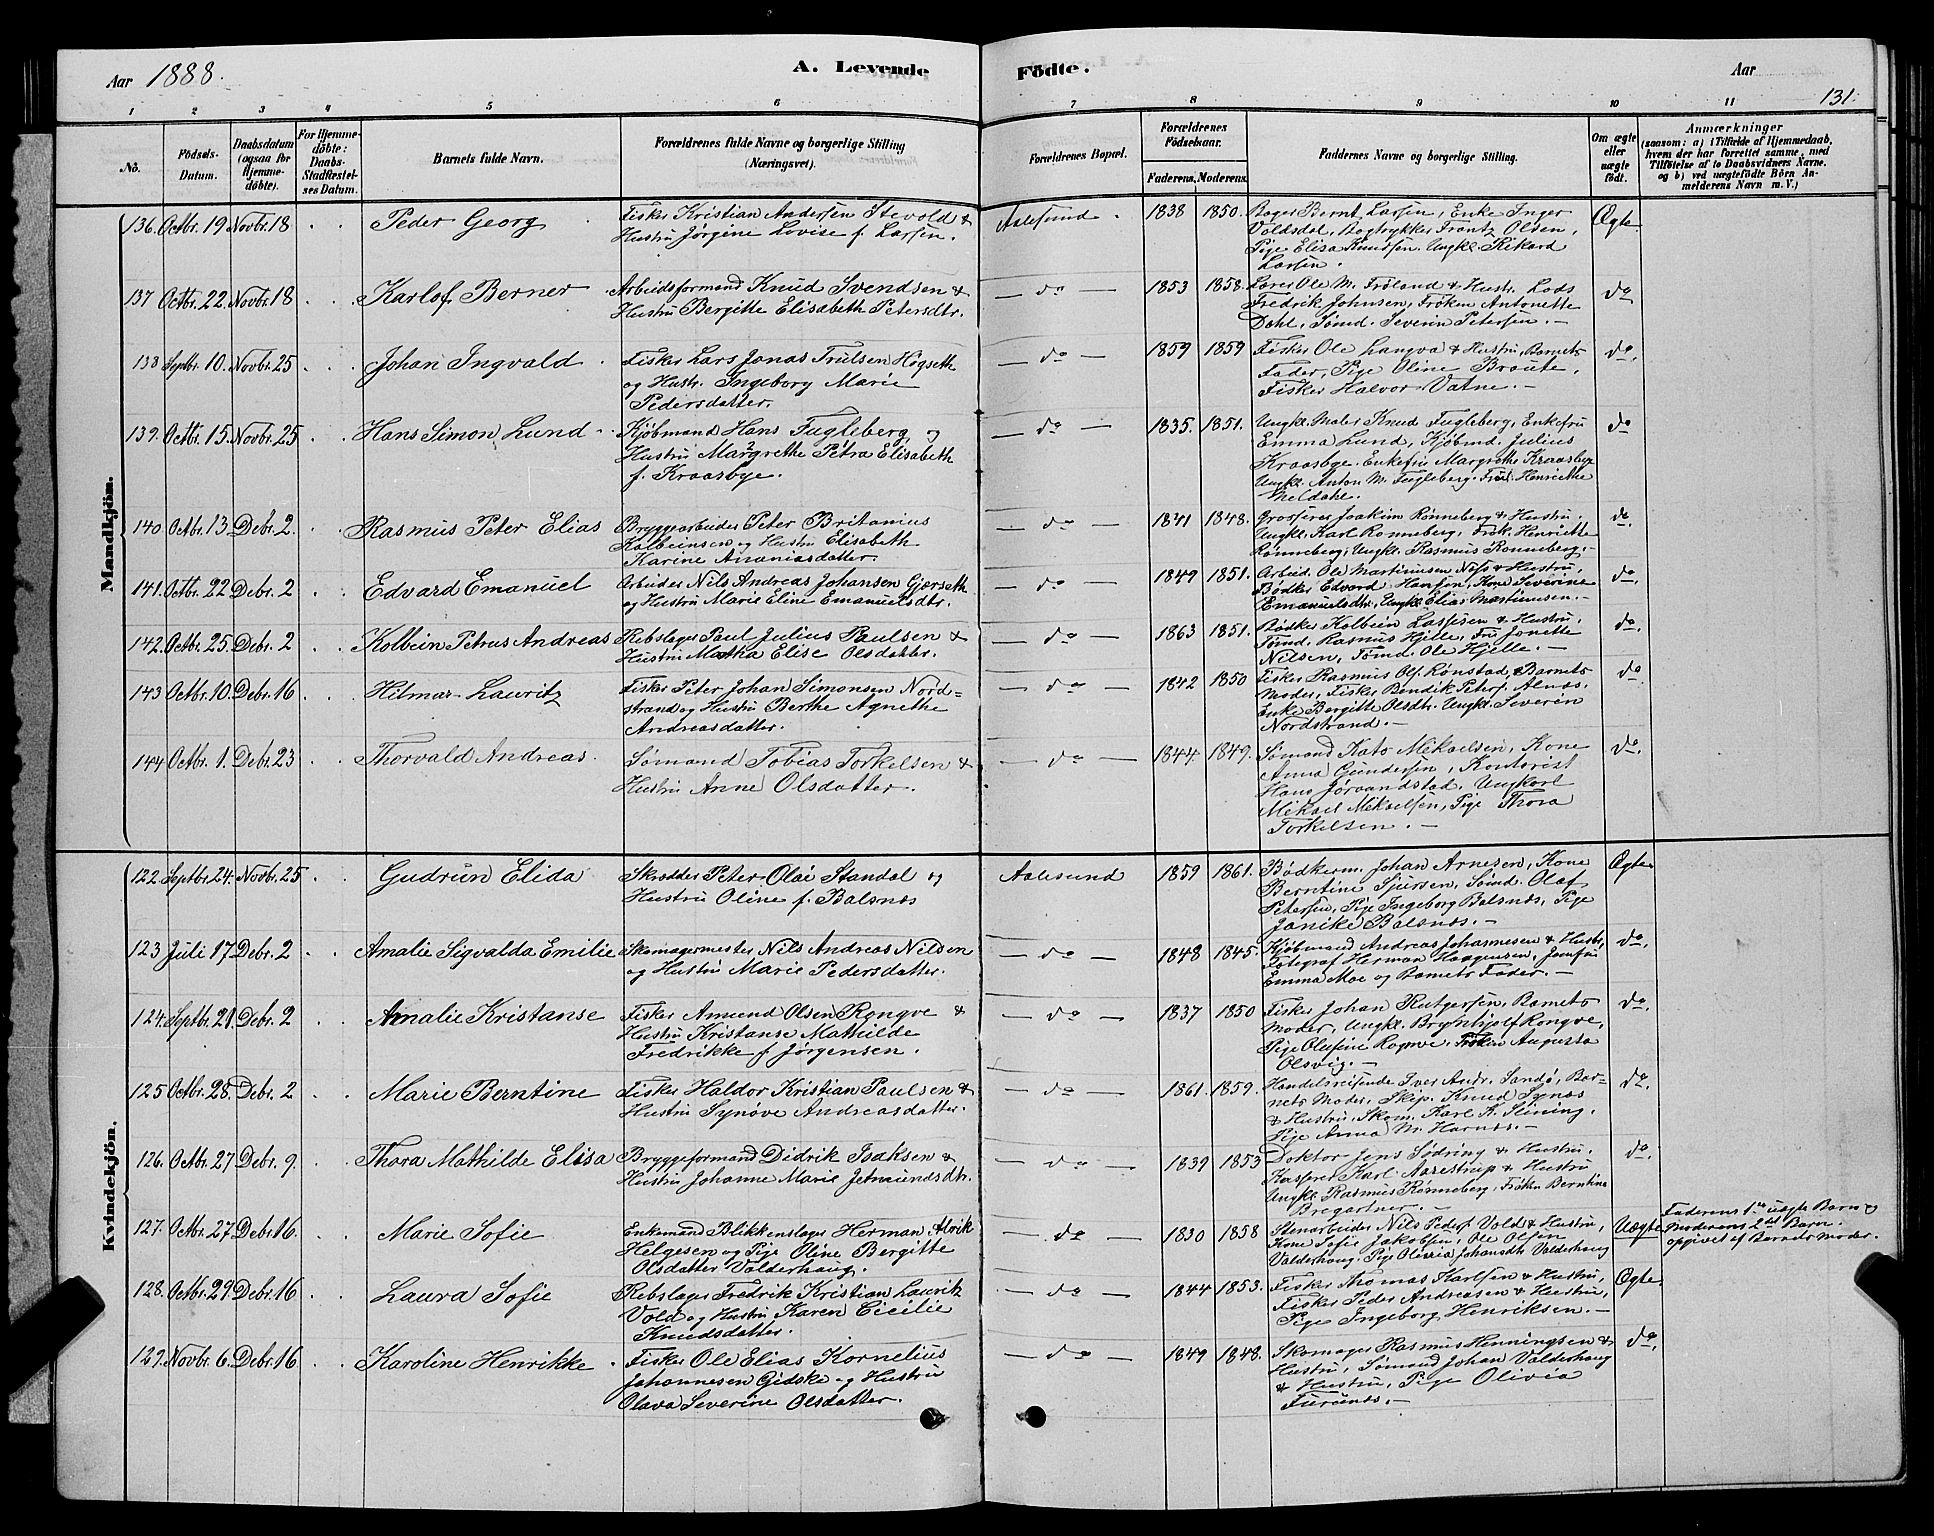 Aar 1888. A. Levende Fødte. Aar
131.
1 2 3 4 5 6 7 8 9 10 11
No.
Fødsels-Datum.
Daabsdatum (ogsaa for Hjemmedøbte).
For Hjemmedøbte: Daabs-Stadfæstelses Datum.
Barnets fulde Navn.
Forældrenes fulde Navne og borgerlige Stilling (Næringsvei).
Forældrenes Bopæl.
Forældrenes Fødselsaar.
Faderens. Moderens.
Faddernes Navne og borgerlige Stilling.
Om ægte eller uægte født.
Anmærkninger
(saasom: a) i Tilfælde af Hjemmedaab,
hvem der har forrettet samme, med
Tilføielse af to Daabsvidners Navne,
og b) ved uægtefødte Børn An-
melderens Navn m. V.)
Mandkjøn.
136. Octbr. 19 Novbr. 18 Peder Georg Fisker Kristian Andersen Stevold & Aalesund 1838 1850. Bager Bernt Larsen, Enke Inger Ægte
Hustru Jørgine Lovise f. Larsen. Voldsdal, Bogtrykker Frantz Olsen,
Pige Elisa Knudsen, Ungkl. Rikard
Larsen.
137 Octbr. 22 Novbr. 18 Karlof Berner Arbeidsformand Knud Svendsen & do 1853 1858. Lærer Ole M. Frøland & Hustr. Lods do
Hustru Bergitte Elisabeth Petersdtr. Fredrik Johnsen, Frøken Antonette
Dahl, Sømd. Severin Petersen.
138 Septbr. 10. Novbr. 25 Johan Ingvald Fisker Lars Jonas Trulsen Høgseth do 1859 1859 Fisker Ole Langva & Hustru, Barnets do.
og Hustr. Ingeborg Marie Fader, Pige Oline Braute,
Pedersdatter. Fisker Halvor Vatne.
139. Octbr. 15. Novbr. 25 Hans Simon Lund Kjøbmand Hans Fugleberg og do 1835. 1851. Ungkl. Maler Knud Fugleberg, Enkefru do
Hustru Margrethe Petra Elisabeth Emma Lund, Kjøbmd. Julius
f. Kraasbye. Kraasbye. Enkefru Margrethe Kraasbye
Ungkl. Anton M. Fugleberg. Frøk. Henriette
Meldahl.
140 Octbr. 13 Debr. 2. Rasmus Peter Elias Bryggearbeider Peter Britanius do 1841 1848. Grosserer Joakim Rønneberg & Hustru. do.
Kolbeinsen og Hustru Elisabeth Ungkl. Karl Rønneberg, Frøk. Henriette
Karine Ananiasdatter. Rønneberg, Ungkl. Rasmus Rønneberg.
141. Octbr. 22 Debr. 2 Edvard Emanuel Arbeider Nils Andreas Johansen Gjærseth do 1849 1851. Arbeid. Ole Martinusen Næss & Hustru, do.
og Hustru Marie Eline Emanuelsdtr. Bødker Edvard Hansen, Kone Severine
Emanuelsdtr. Ungkl. Elias Martinusen.
142. Octbr. 25. Debr. 2 Kolbein Petrus Andreas Rebslager Paul Julius Paulsen & do 1863 1851. Bødker Kolbein Lassesen & Hustru, do.
Hustru Martha Elise Olsdatter. Tømd. Rasmus Hjelle, Fru Jonette
Nilsen, Tømd. Ole Hjelle.
143 Octbr. 10. Debr. 16 Hilmar Lauritz Fisker Peter Johan Simonsen Nord- do 1842 1850 Fisker Rasmus Ols. Rønstad, Barnets do
strand og Hustru Berthe Agnethe Moder, Fisker Bendik Peters. Alnæs,
Andreasdatter. Enke Bergitte Olsdtr. Ungkl. Severin
Nordstrand.
144 Octbr. 1. Debr. 23 Thorvald Andreas Sømand Tobias Torkelsen & do 1844 1849. Sømand Kato Mikaelsen, Kone do.
Hustru Anne Olsdatter. Anna Gundersen, Kontorist
Hans Jøraandstad, Ungkarl
Mikael Mikaelsen, Pige Thora
Torkelsen.
Kvindekjøn.
122. Septbr. 24. Novbr. 25 Gudrun Elida Skrædder Peter Olai Standal og Aalesund 1859 1861. Bødkerm. Johan Arnesen, Kone Ægte
Hustru Oline f. Balsnæs Berntine Sjursen, Sømd. Olaf
Petersen, Pige Ingeborg Balsnæs, Pige
Janike Balsnæs.
123 Juli 17 Debr. 2 Amalie Sigvalda Emilie Skomagermester Nils Andreas Nilsen do 1848 1845. Kjøbmand Andreas Johannesen & Hustr. do.
og Hustru Marie Pedersdatter. Fotograf Herman Haagensen, Jomfru
Emma Moe og Barnets Fader.
124. Septbr. 21. Debr. 2 Amalie Kristanse Fisker Amund Olsen Rongve & do 1837 1850 Fisker Johan Rutgersen, Barnets do.
Hustru Kristanse Mathilde Moder, Ungkl. Brynhjolf Rongve,
Fredrikke f. Jørgensen. Pige Olufine Rogne, Frøken Augusta
Olsvig.
125 Octbr. 28. Debr. 2 Marie Berntine Fisker Haldor Kristian Paulsen & do 1861. 1859. Handelsreisende Iver Andr. Sandø, Bar- do.
Hustru Synøve Andreasdatter. nets Moder, Skip. Knud Synæs
& Hustru, Skom. Karl K. Flining,
Pige Anna M. Harnæs.
126. Octbr. 27 Debr. 9. Thora Mathilde Elisa Bryggeformand Didrik Isaksen & do 1839 1853 Doktor Jens Sødring & Hustru, do.
Hustru Johanne Marie Jetmundsdtr. Kasserer Karl Aarestrup & Hustru,
Ungkl. Rasmus Rønneberg, Frøken Berntine
Bregartner.
127. Octbr. 27 Debr. 16. Marie Sofie Enkemand Blikkenslager Herman Alvik do 1830 1858 Stenarbeider Nils Peders. Vold & Hustru, Uægte Faderens 1ste uægte Barn og
Helgesen og Pige Oline Bergitte Kone Sofie Jakobsen, Ole Olsen Moderens 2det Barn.
Olsdatter Valderhaug. Valderhaug. Pige Olivia Johansdtr Valderhaug opgivet af Barnets Moder.
128. Octbr. 29 Debr. 16 Laura Sofie Rebslager Fredrik Kristian Laurits do 1844 1853. Fisker Thomas Karlsen & Hustru, Ægte
Vold og Hustru Karen Cicilie Fisker Peder Andreasen & Hustru,
Knudsdatter. Pige Ingeborg Henriksen.
129. Novbr. 6. Debr. 16 Karoline Henrikke Fisker Ole Elias Kornelius do 1849 1848. Skomager Rasmus Henningsen & do.
Johannesen Gidske og Hustru Hustru, Sømand Johan Valderhaug
Olava Severine Olsdatter. & Hustru, Pige Olivia
Furunæs.